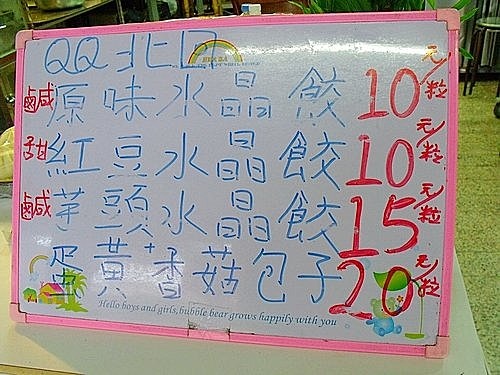 QQ北
鹹 原味水晶餃 10元/粒
甜 紅豆水晶餃 10元/粒
鹹 芋頭水晶餃 15元/粒
蛋黃+香菇包子 20元/粒
Hello boys and girls, bubble bear grows happily with you